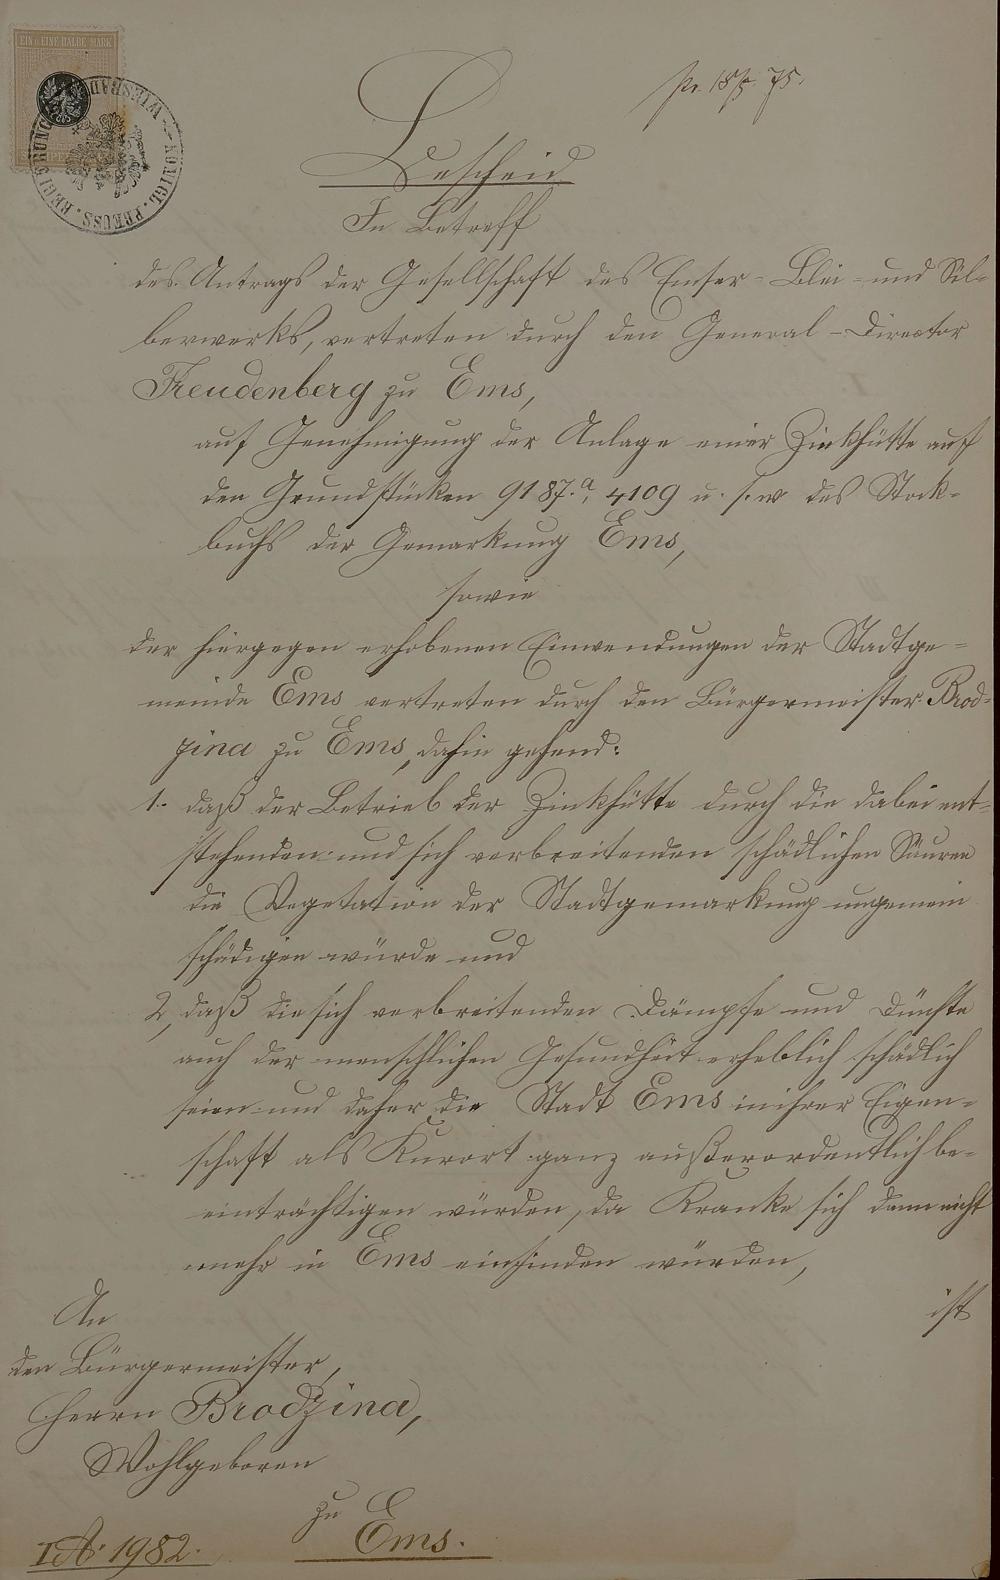 EIN U. EINE HALBE MARK
KÖNIGL. PREUSS. REGIERUNG WIESBADEN
pr. 18/5. 75.
Bescheid
In Betreff
des Antrags der Gesellschaft des Emser-Blei- und Sil-
berwerks, vertreten durch den General-Director
Freudenberg zu Ems,
auf Genehmigung der Anlage einer Zinkhütte auf
den Grundstücken 9187.a, 4109 u. s. w des Stock-
buchs der Gemarkung Ems,
sowie
der hiergegen erhobenen Einwendungen der Stadtge-
meinde Ems vertreten durch den Bürgermeister Brod-
zina zu Ems, dahin gehend:
1. daß der Betrieb der Zinkhütte durch die dabei ent-
stehenden und sich verbreitenden schädlichen Säuren
die Vegetation der Stadtgemarkung ungemein
schädigen würde und
2, daß die sich verbreitenden Dämpfe und Dünste
auch der menschlichen Gesundheit erheblich schädlich
seien und daher die Stadt Ems in ihrer Eigen-
schaft als Kurort ganz außerordentlich be-
einträchtigen würden, da Kranke sich dann nicht
mehr in Ems einfinden würden,
ist
An
den Bürgermeister,
Herrn Brodzina,
Wohlgeboren
zu
Ems.
I A. 1982.